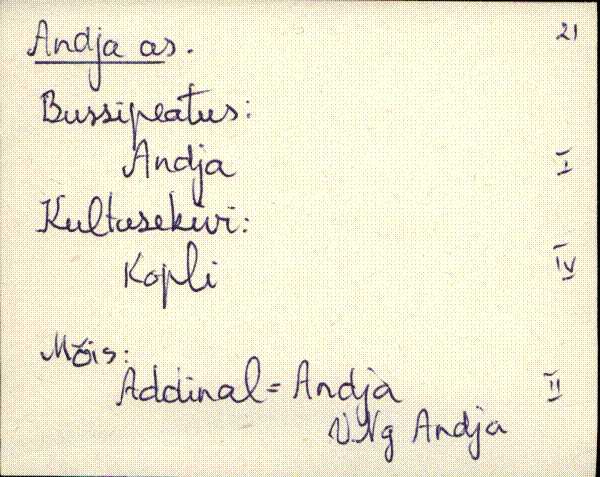 Andja as. 21
Bussipeatus:
Andja I
Kultusekivi:
Kopli IV
Mõis:
Addinal = Andja II
V.Ng Andja